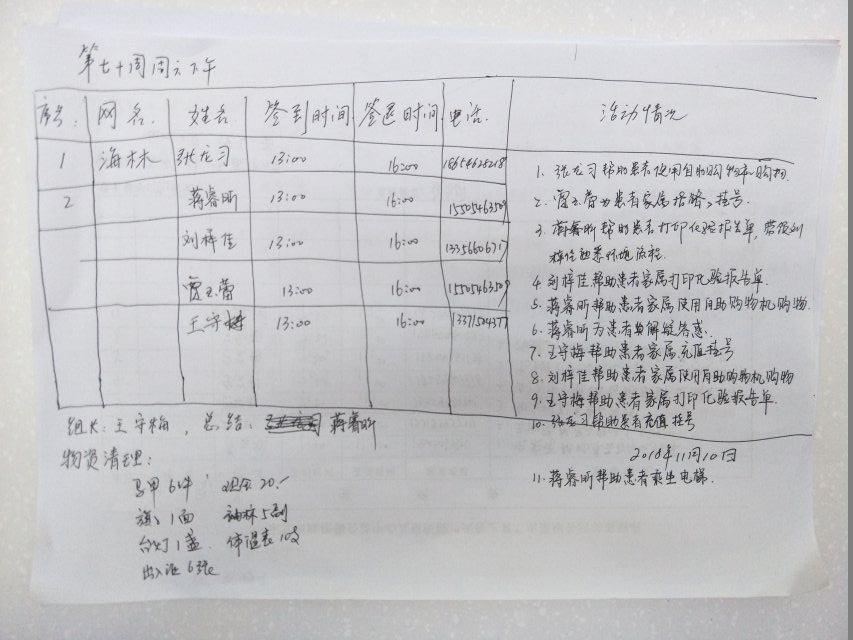 第七十周周六下午
序号. 网名. 姓名 签到时间. 签退时间 电话. 活动情况
1 海林 张龙习 13:00 16:00 18654625218
2 蒋睿昕 13:00 16:00 15505463509
刘梓佳 13:00 16:00 13356606717
贾玉蕾 13:00 16:00 15505463509
王守梅 13:00 16:00 1337150437
1. 张龙习帮助患者使用自助购物机购物.
2. 贾玉蕾为患者家属指路,挂号.
3. 蒋睿昕帮助患者打印化验报告单, 带领刘
梓佳熟悉环境流程.
4. 刘梓佳帮助患者家属打印化验报告单.
5. 蒋睿昕帮助患者家属使用自助购物机购物.
6. 蒋睿昕为患者解疑答惑.
7. 王守梅帮助患者家属充值挂号
8. 刘梓佳帮助患者家属使用自助购物机购物
9. 王守梅帮助患者家属打印化验报告单.
10. 张龙习帮助患者充值挂号
2018年11月10日
11. 蒋睿昕帮助患者乘坐电梯.
组长: 王守梅, 总结: 蒋睿昕
物资清理:
马甲6件 现金20.-
旗1面 袖标5副
台灯1盏. 体温表10支
出入证6张